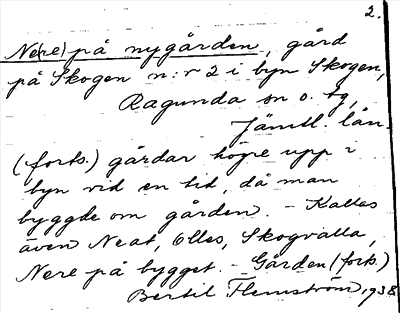 2.
Ne(re) på nygården, gård
på Skogen n:r 2 i byn Skogen,
Ragunda sn o. tg,
Jämtl. län.
(forts.) gårdar högre upp i
byn vid en tid, då man
byggde om gården. – Kallas
även Neat, Olles, Skogvalla,
Nere på bygget. – Gården (forts.)
Bertil Flemström, 1938